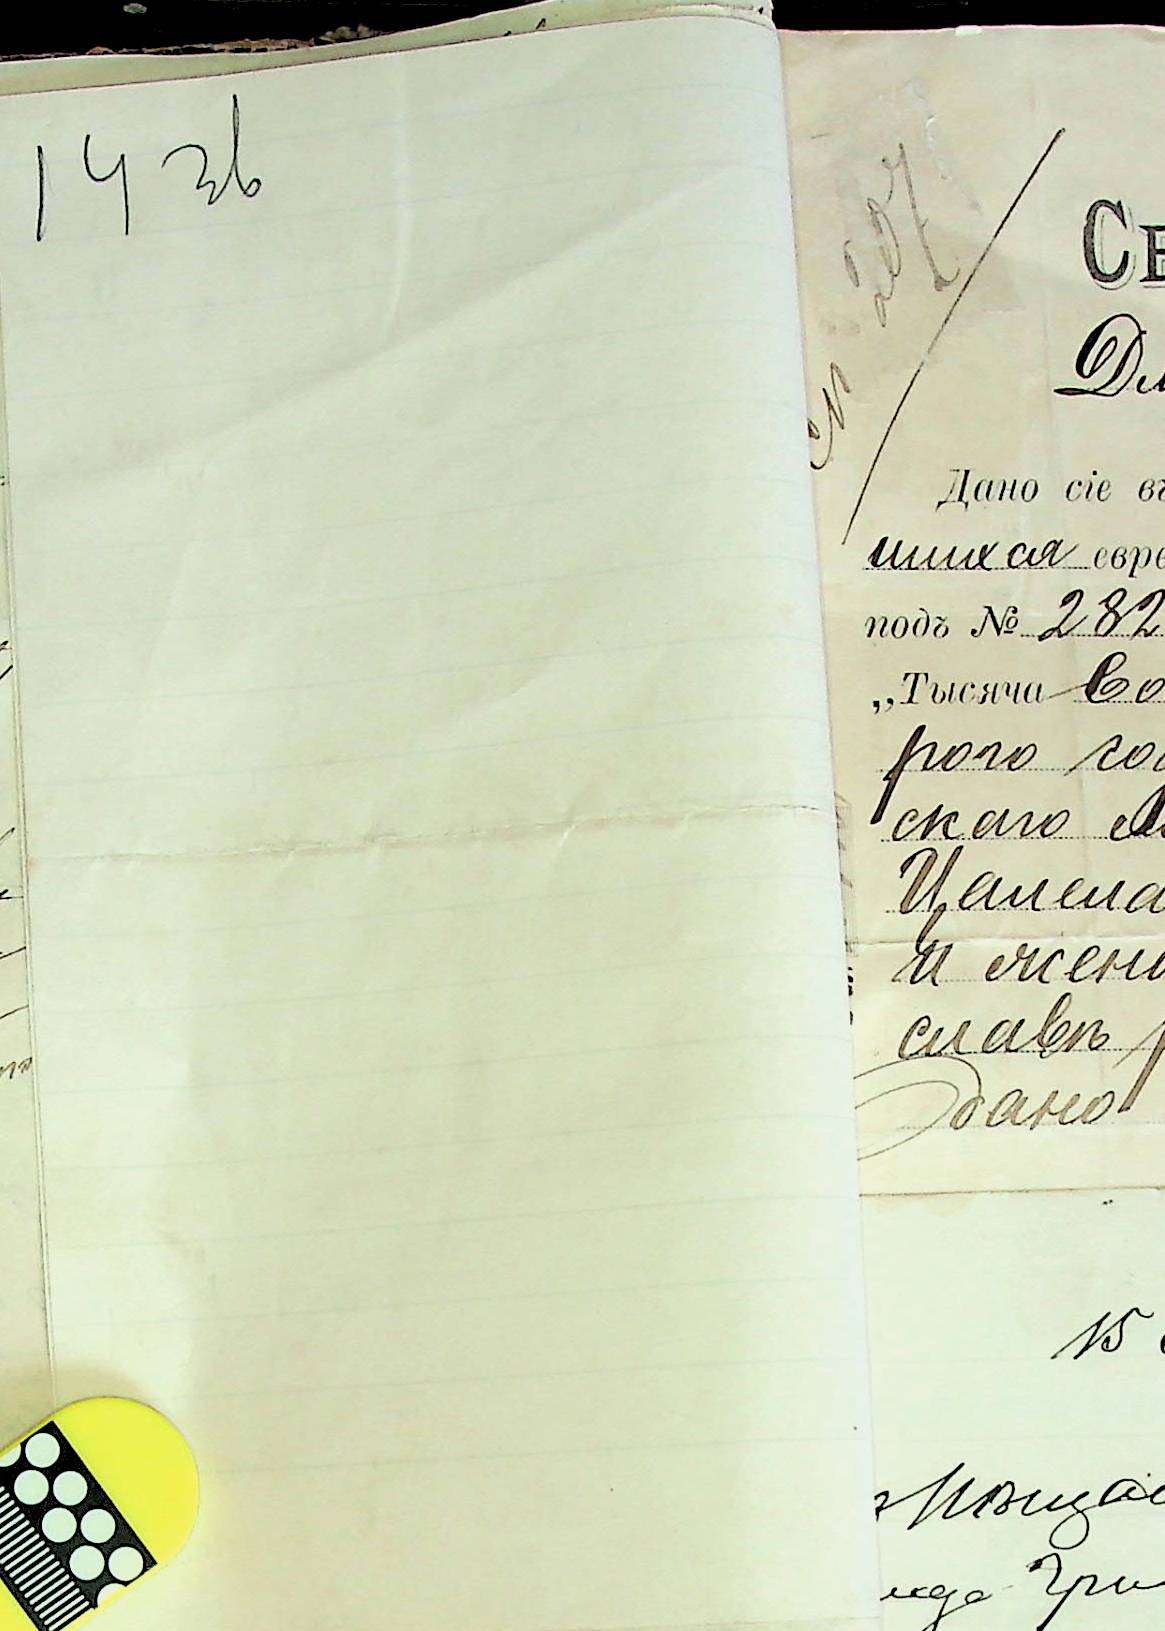 14 зв
Св
Дл
Дано сіе въ
шихся евре
подъ № 282
„Тысяча во
рого го
скаго М
Цалела
и жены
славъ р
дано
15
Мѣщан
Гри